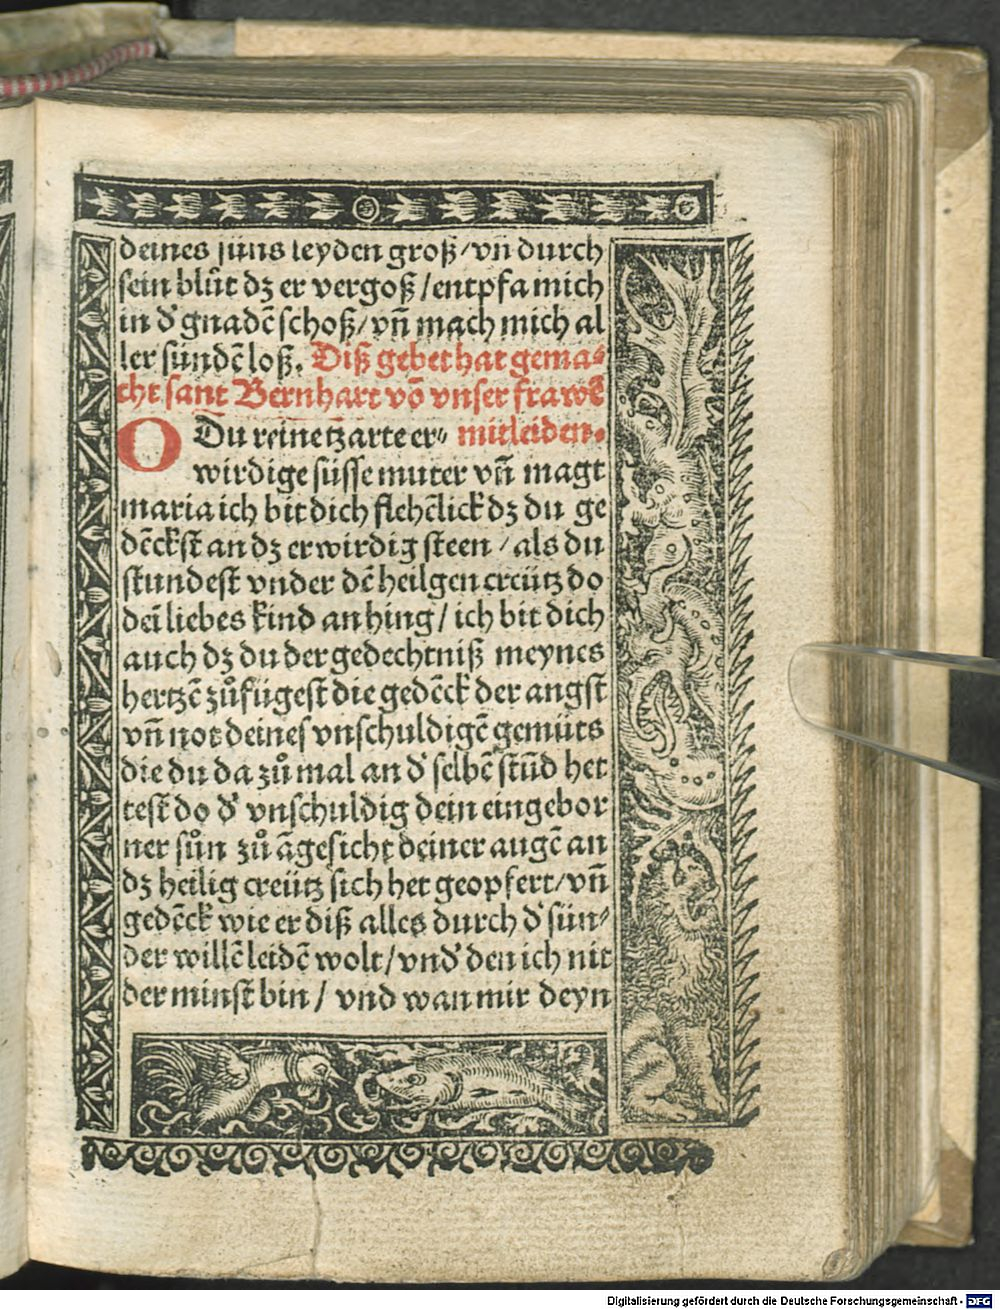 deines suns leyden groß/vn̄ durch
sein blůt dz er vergoß/entpfa mich
in d' gnadē schoß/vn̄ mach mich al
ler sündē loß. Diß gebet hat gema⸗
cht sant Bernhart vō vnser frawē
O Du reine tzarte er⸗ mitleiden.
wirdige süsse muter vn̄ magt
maria ich bit dich flehēlick dz du ge
dēckst an dz erwirdig steen/als du
stundest vnder dē heilgen creütz do
dei liebes kind an hing/ich bit dich
auch dz du der gedechtniß meynes
hertzē zůfügest die gedēck der angst
vn̄ not deines vnschuldigē gemüts
die du da zů mal an d' selbē stūd het
test do d' vnschuldig dein eingebor
ner sůn zů āgesicht deiner augē an
dz heilig creütz sich het geopfert/vn̄
gedēck wie er diß alles durch d' sün⸗
der willē leidē wolt/vnd' den ich nit
der minst bin/ vnd wan mir deyn
Digitalisierung gefördert durch die Deutsche Forschungsgemeinschaft - DFG